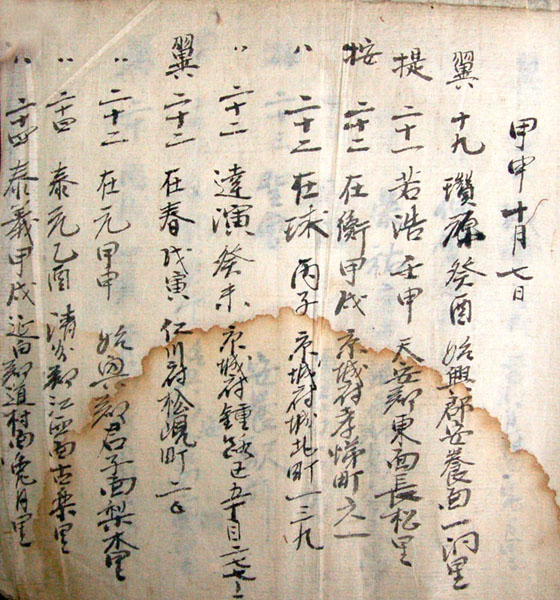 甲申十月七日
翼 十九 瓚源 癸酉 始興郡安養面一洞里
提 二十一 若浩 壬申 天安郡東面長松里
按 二十二 在衡 甲戌 京城府孝悌町之一
〃 二十二 在球 丙子 京城府城北町一三九
〃 二十一 達演 癸未 京城府鍾路五丁目二七七
翼 二十二 在春 戊寅 仁川府松峴町二
〃 二十二 在元 甲申 始興郡君子面梨木里
〃 二十四 泰元 乙酉 清州郡江西面古樂里
〃 二十四 泰義 甲戌 郡道村面兔月里